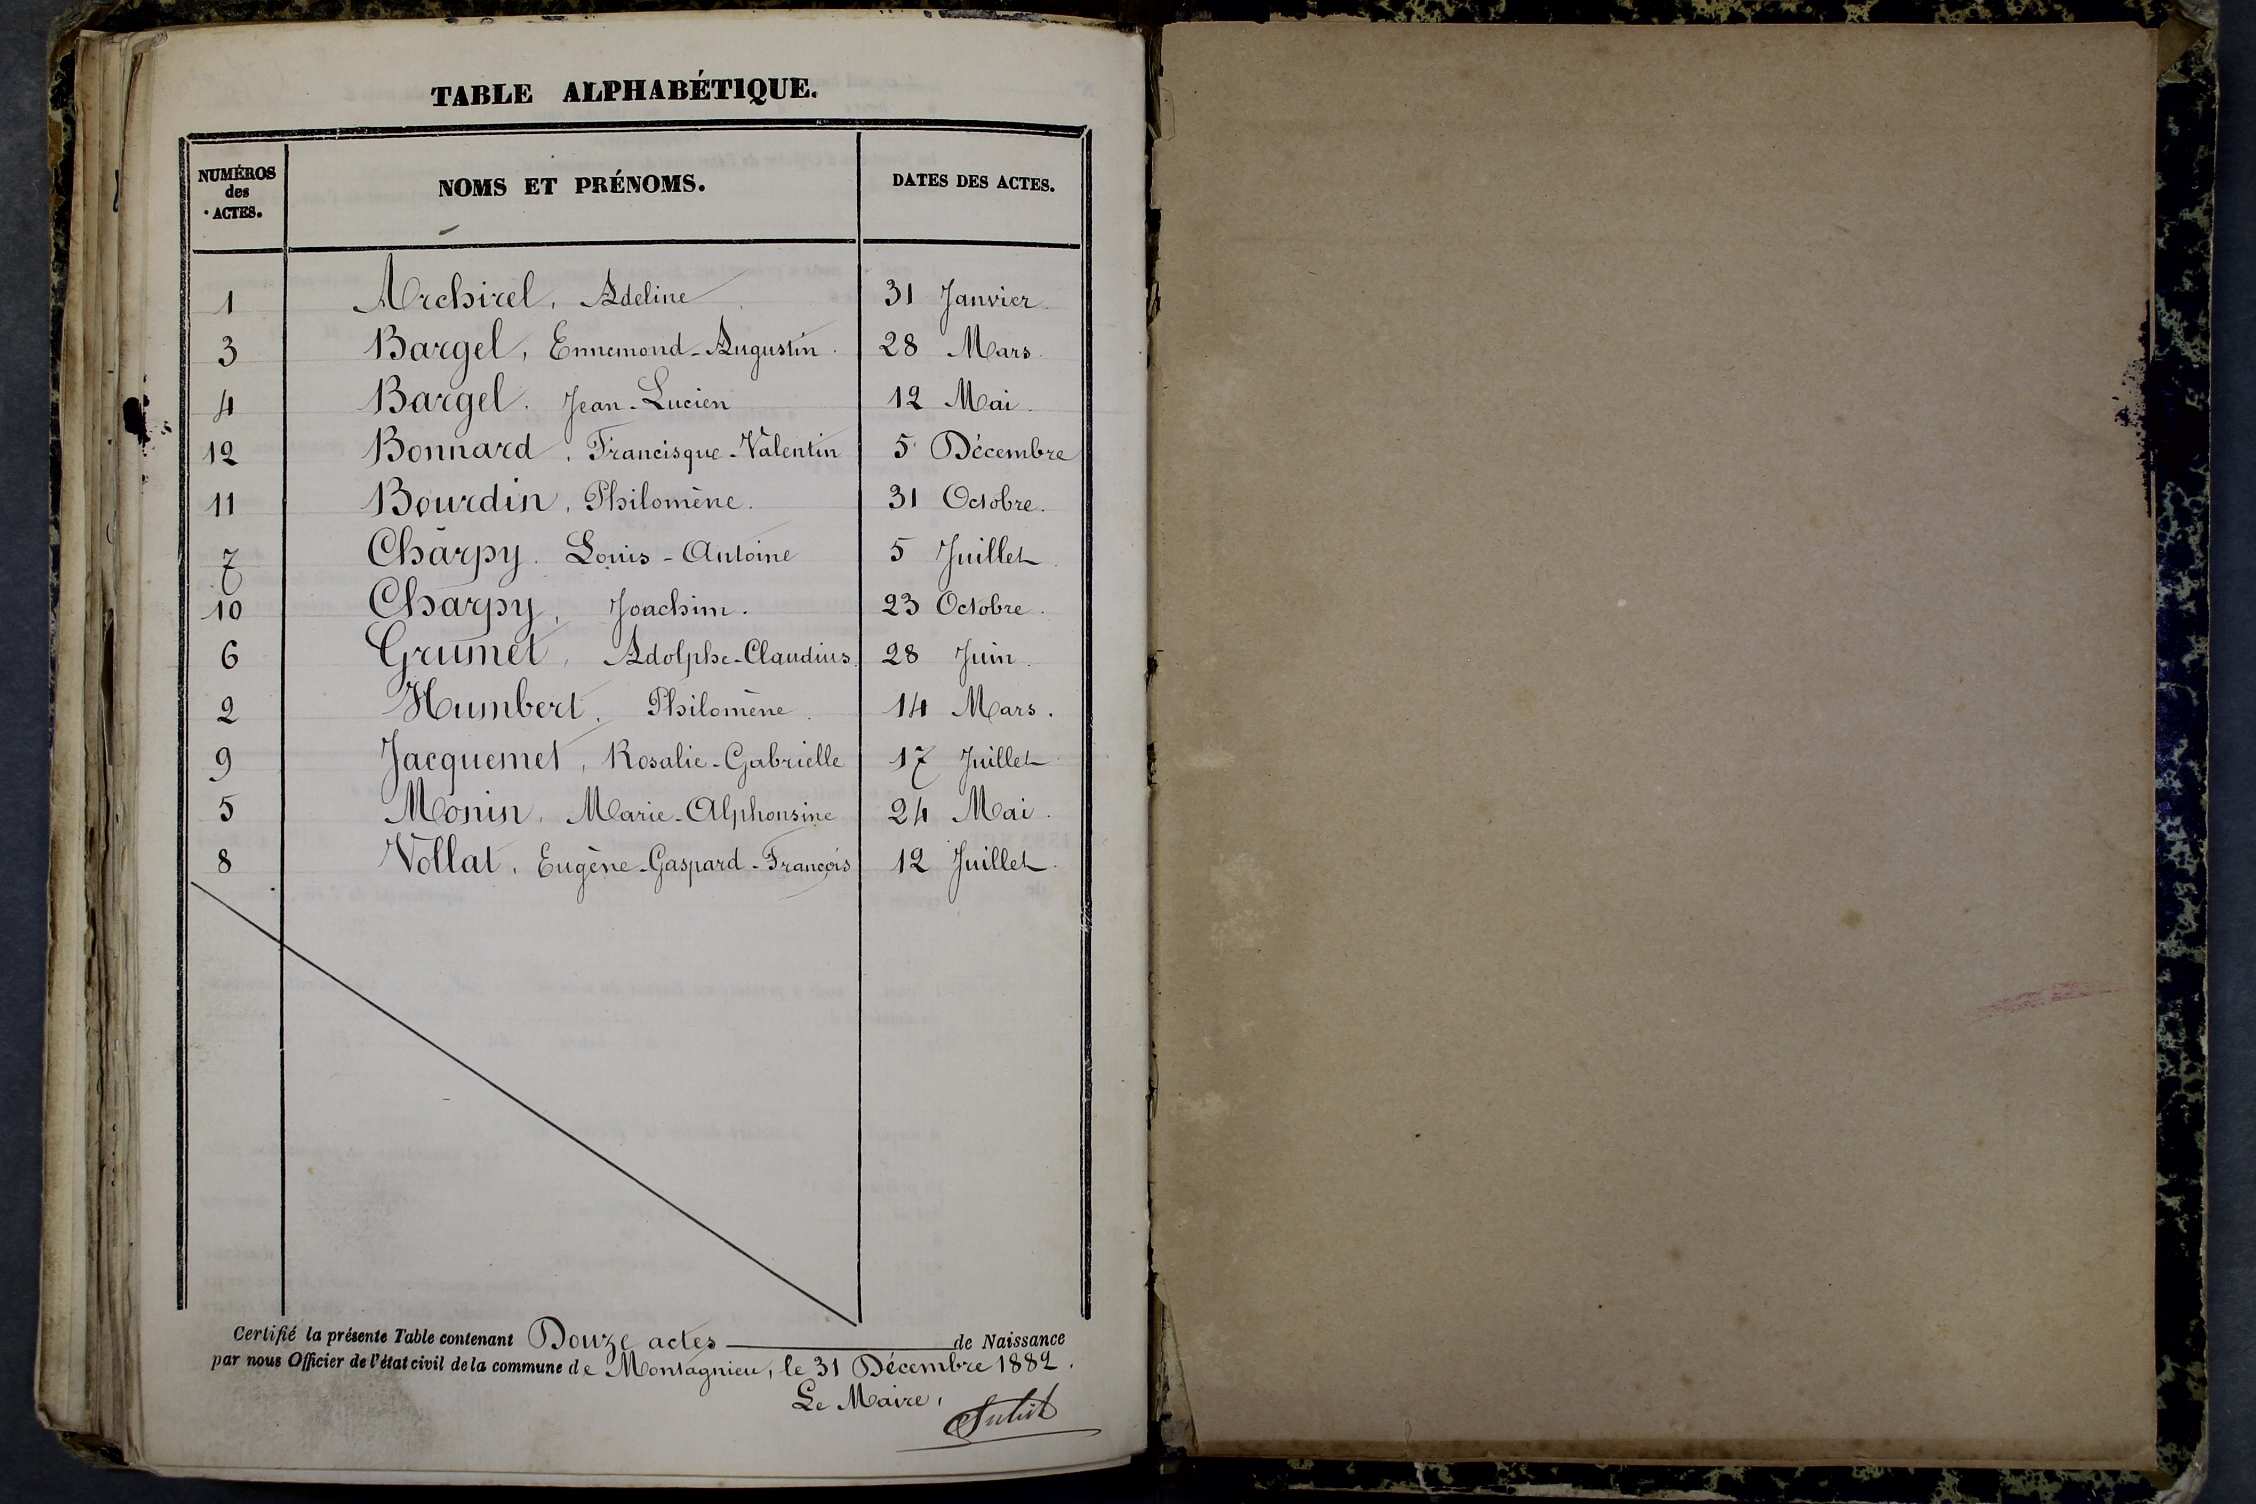 TABLE ALPHABÉTIQUE.
NUMÉROS des ACTES. NOMS ET PRÉNOMS. DATES DES ACTES.
1 Archirel, Adeline 31 Janvier.
3 Bargel, Ennemond-Augustin. 28 Mars.
4 Bargel. Jean-Lucien 12 Mai.
12 Bonnard, Francisque-Valentin 5 Décembre
11 Bourdin, Philomène. 31 Octobre.
7 Charpy. Louis-Antoine 5 Juillet.
10 Charpy, Joachim. 23 Octobre.
6 Grumet, Adolphe-Claudius. 28 Juin.
2 Humbert, Philomène. 14 Mars.
9 Jacquemet, Rosalie-Gabrielle 17 Juillet
5 Monin, Marie-Alphonsine 24 Mai.
8 Vollat, Eugène-Gaspard-François 12 Juillet.
Certifié la présente Table contenant Douze actes de Naissance
par nous Officier de l'état civil de la commune de Montagnieu, le 31 Décembre 1882.
Le Maire,